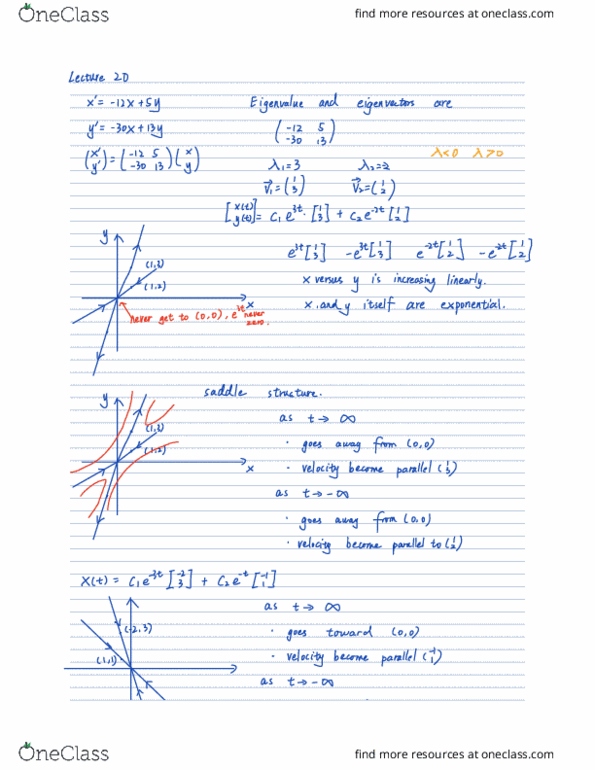 OneClass
find more resources at oneclass.com
Lecture 20
x' = -12x + 5y
Eigenvalue and eigenvectors are
y' = -30x + 13y
(-12 5
-30 13)
(x'
y') = (-12 5
-30 13)(x
y)
λ<0 λ>0
λ₁=3 λ₂=-2
V₁=(1
3) V₂=(1
2)
[x(t)
y(t)] = C₁e^3t·[1
3] + C₂e^-2t[1
2]
e^3t[1
3] -e^3t[1
3] e^-2t[1
2] -e^-2t[1
2]
y
(1,3)
(1,2)
x
x versus y is increasing linearly.
x and y itself are exponential.
never get to (0,0), e^3t never zero.
saddle structure.
y
(1,3)
(1,2)
x
as t→∞
· goes away from (0,0)
· velocity become parallel (1
3)
as t→-∞
· goes away from (0,0)
· velocity become parallel to (1
2)
X(t) = C₁e^-3t[-2
3] + C₂e^-t[-1
1]
(-2,3)
(1,1)
as t→∞
· goes toward (0,0)
· velocity become parallel (-1
1)
as t→-∞
OneClass
find more resources at oneclass.com